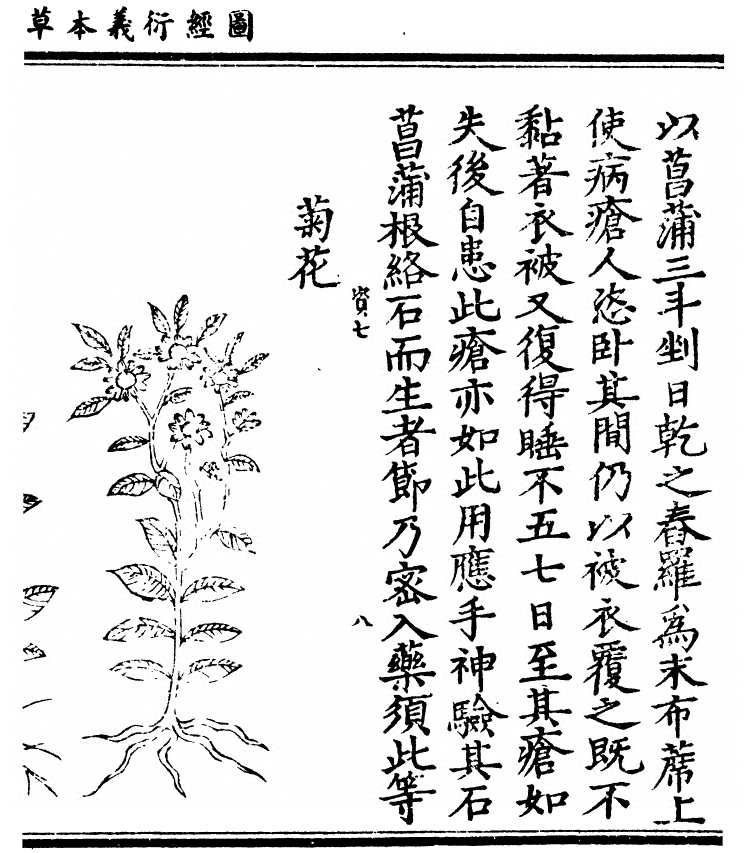 圖經衍義本草
以菖蒲三斗剉日乾之舂羅為末布蓆上
使病瘡人恣卧其間仍以被衣覆之既不
黏著衣被又復得睡不五七日至其瘡如
失後自患此瘡亦如此用應手神驗其石
菖蒲根絡石而生者節乃密入藥須此等
資七
八
菊花